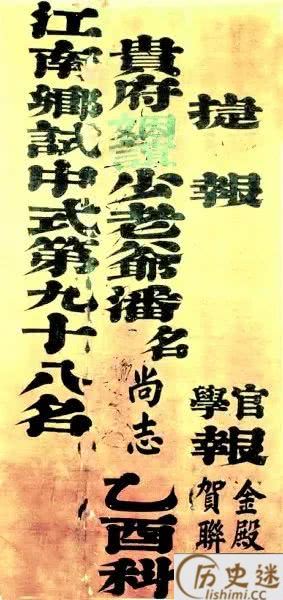 捷報 官學報 金殿賀聯
貴府少老爺潘名尚志 乙酉科
江南鄉試中式第九十八名
历史迷
lishimi.cc